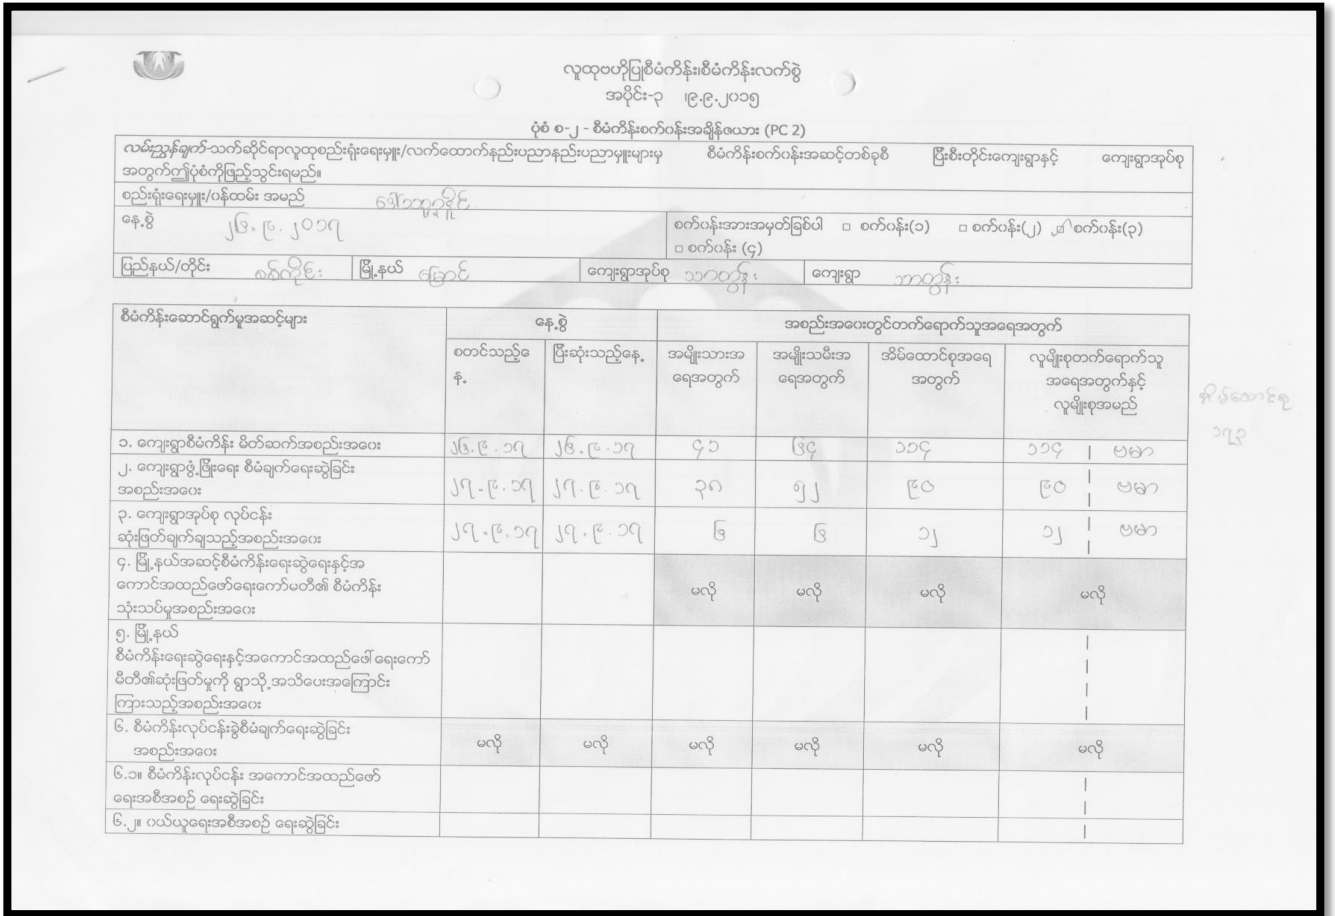 လူထုဗဟိုပြုစီမံကိန်း၊စီမံကိန်းလက်စွဲ
အပိုင်း-၃ ၊၉.၉.၂၀၁၅
ပုံစံ စ-၂ - စီမံကိန်းစက်ဝန်းအချိန်ဇယား (PC 2)
လမ်းညွှန်ချက်-သက်ဆိုင်ရာလူထုစည်းရုံးရေးမှူး/လက်ထောက်နည်းပညာနည်းပညာမှူးများမှ စီမံကိန်းစက်ဝန်းအဆင့်တစ်ခုစီ ပြီးစီးတိုင်းကျေးရွာနှင့် ကျေးရွာအုပ်စု
အတွက်ဤပုံစံကိုဖြည့်သွင်းရမည်။
စည်းရုံးရေးမှူး/ဝန်ထမ်း အမည်
နေ့စွဲ ၂၆.၉.၂၀၁၇
စက်ဝန်းအားအမှတ်ခြစ်ပါ □ စက်ဝန်း(၁) □ စက်ဝန်း(၂) ☑ စက်ဝန်း(၃)
□ စက်ဝန်း (၄)
ပြည်နယ်/တိုင်း စစ်ကိုင်း မြို့နယ် မြောင် ကျေးရွာအုပ်စု ကျေးရွာ
စီမံကိန်းဆောင်ရွက်မှုအဆင့်များ နေ့စွဲ အစည်းအဝေးတွင်တက်ရောက်သူအရေအတွက်
စတင်သည့်နေ့ ပြီးဆုံးသည့်နေ့ အမျိုးသားအရေအတွက် အမျိုးသမီးအရေအတွက် အိမ်ထောင်စုအရေအတွက် လူမျိုးစုတက်ရောက်သူအရေအတွက်နှင့်လူမျိုးစုအမည်
အိမ်ထောင်စု
၁၇၃
၁. ကျေးရွာစီမံကိန်း မိတ်ဆက်အစည်းအဝေး ၂၆.၉.၁၇ ၂၆.၉.၁၇ ၄၁ ၆၄ ၁၁၄ ၁၁၄ | ဗမာ
၂. ကျေးရွာဖွံ့ဖြိုးရေး စီမံချက်ရေးဆွဲခြင်း
အစည်းအဝေး ၂၇.၉.၁၇ ၂၇.၉.၁၇ ၃၈ ၅၂ ၉၀ ၉၀ | ဗမာ
၃. ကျေးရွာအုပ်စု လုပ်ငန်း
ဆုံးဖြတ်ချက်ချသည့်အစည်းအဝေး ၂၇.၉.၁၇ ၂၇.၉.၁၇ ၆ ၆ ၁၂ ၁၂ | ဗမာ
၄. မြို့နယ်အဆင့်စီမံကိန်းရေးဆွဲရေးနှင့်အ
ကောင်အထည်ဖော်ရေးကော်မတီ၏ စီမံကိန်း
သုံးသပ်မှုအစည်းအဝေး မလို မလို မလို မလို
၅. မြို့နယ်
စီမံကိန်းရေးဆွဲရေးနှင့်အကောင်အထည်ဖေါ်ရေးကော်
မီတီ၏ဆုံးဖြတ်မှုကို ရွာသို့အသိပေးအကြောင်း
ကြားသည့်အစည်းအဝေး
၆. စီမံကိန်းလုပ်ငန်းခွဲစီမံချက်ရေးဆွဲခြင်း
အစည်းအဝေး မလို မလို မလို မလို မလို မလို
၆.၁။ စီမံကိန်းလုပ်ငန်း အကောင်အထည်ဖော်
ရေးအစီအစဉ် ရေးဆွဲခြင်း
၆.၂။ ဝယ်ယူရေးအစီအစဉ် ရေးဆွဲခြင်း